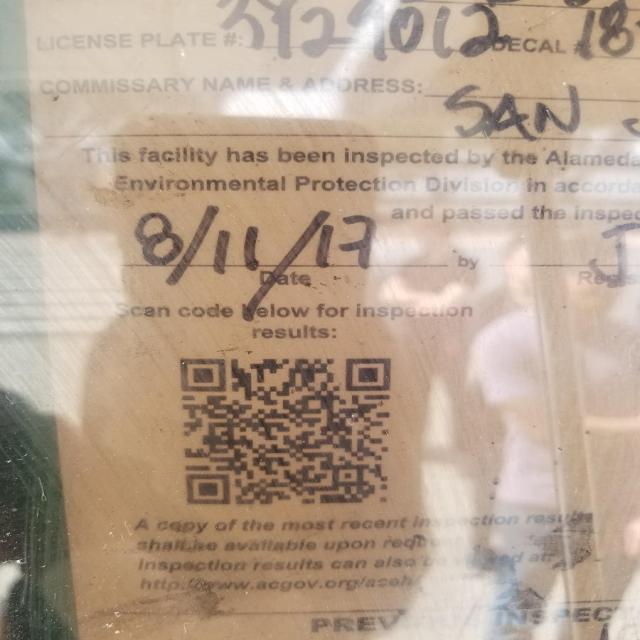 LICENSE PLATE #: 3Y29012 DECAL # 18
COMMISSARY NAME & ADDRESS: SAN
This facility has been inspected by the Alameda
Environmental Protection Division in accorda
and passed the inspec
8/11/17 by
Date
Scan code below for inspection
results:
A copy of the most recent inspection results
shall be available upon
inspection results can also be
http://www.acgov.org/aceh